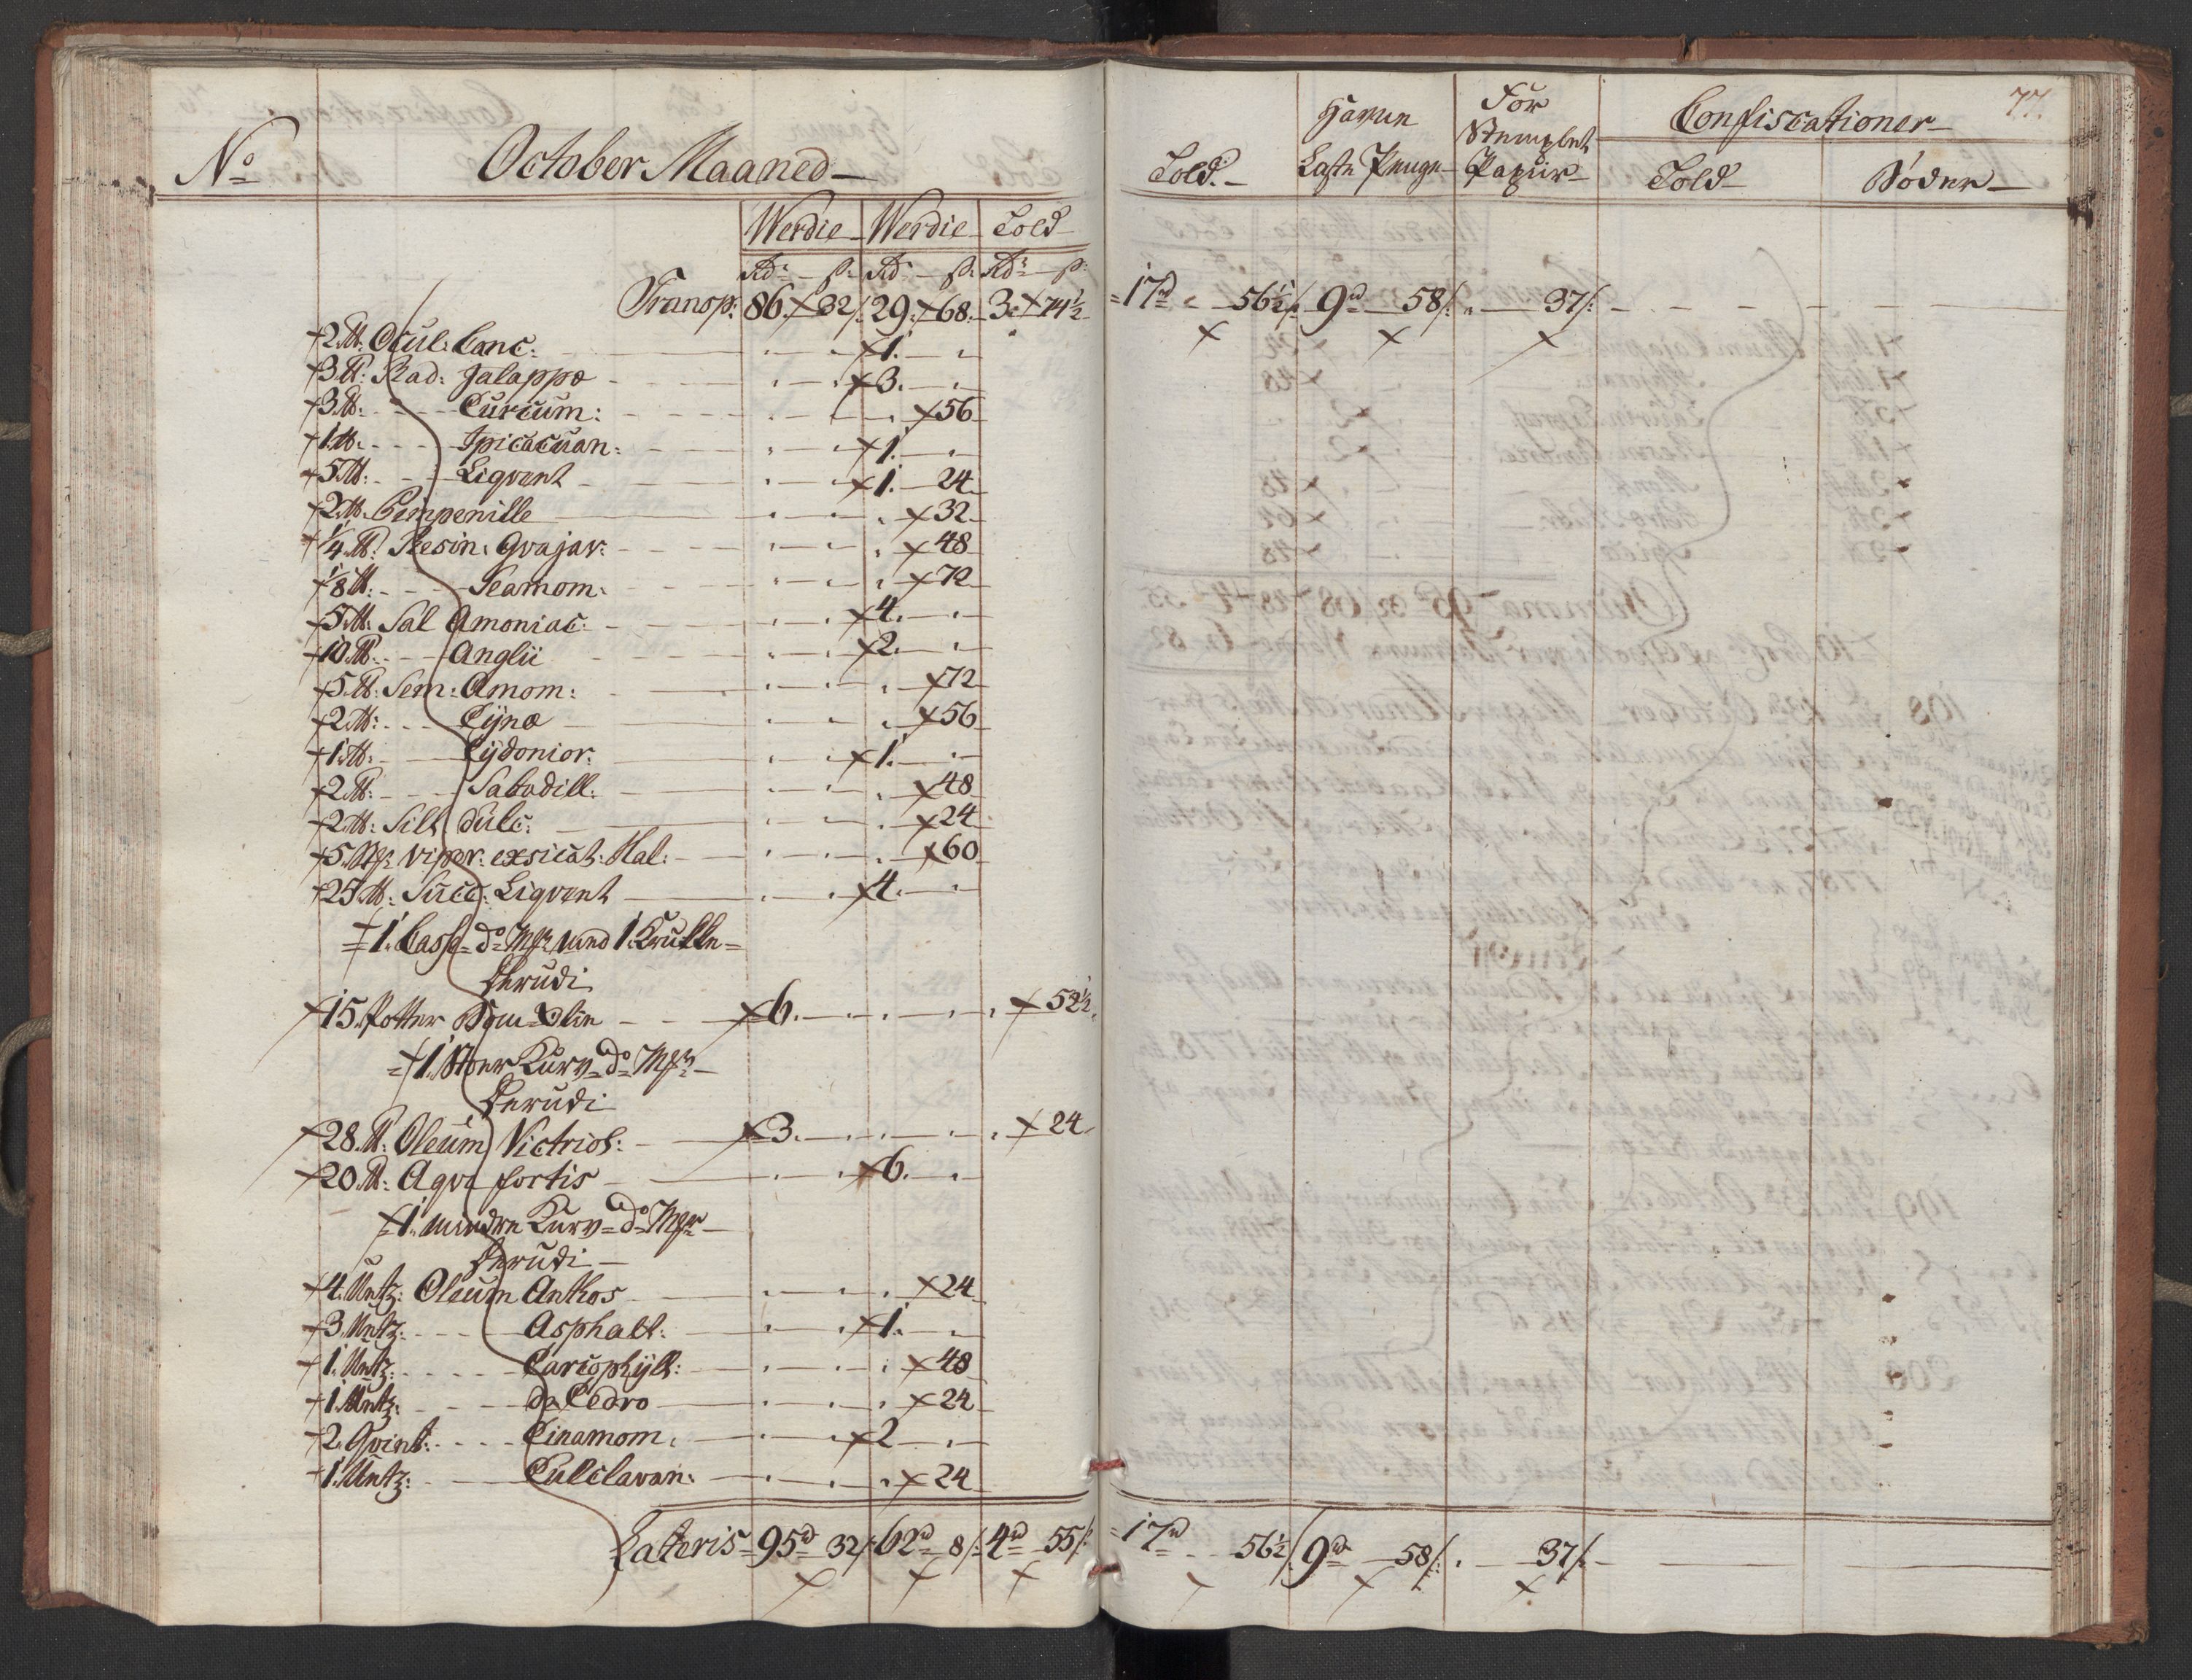 No October Maaned
Werdie Werdie Told
Rdr ß: Rdr ß: Rdr ß:
Transp: 86. 32/. 29. 68. 3. 74½
2 ℔: Ocul: Canc: 1.
3 ℔: Rad: Jalappæ 3.
3 ℔: Curcum: 56
1 ℔: Ipicacuan: 1.
5 ℔: Liqvent 1. 24
2 ℔: Pimpenille 32
1/4 ℔: Resin: Gvajac: 48
1/8 ℔: Scamom: 72
5 ℔: Sal Amoniac: 4.
10 ℔: Anglii 2.
5 ℔: Sem: Amom: 72
2 ℔: Cÿnæ 56
1 ℔: Cÿdonior: 1.
2 ℔: Sabadill: 48
2 ℔: Silt dulc: 24
5 viper: exsicat: 60
25 ℔: Succ: Liqvent 4.
1. Cass do med 1. Krukke
Herudi
15. Potter Bom Olie 6. 52½
1. Stoer Kurv do
Herudi
28. ℔: Oleum Victriol: 3. 24
20 ℔: Aqva fortis 6.
1. mindre Kurv do
Herudi
4. Untz: Oleum Anthos 24
3. Untz: Asphalt: 1.
1. Untz: Cariophÿll: 48
1. Untz: de Cedro 24
2. Qvint: Cinamom: 2
1. Untz: Culclavan: 24
Lateris 95d 32/. 62d 8/. 4d 55/.
77.
Told. Havne Laste Penge For Stemplet Papiir Confiscationer
Told Bøder
17d 56½/. 9d 58/. 37/.
17d 56½/. 9d 58/. 37/.